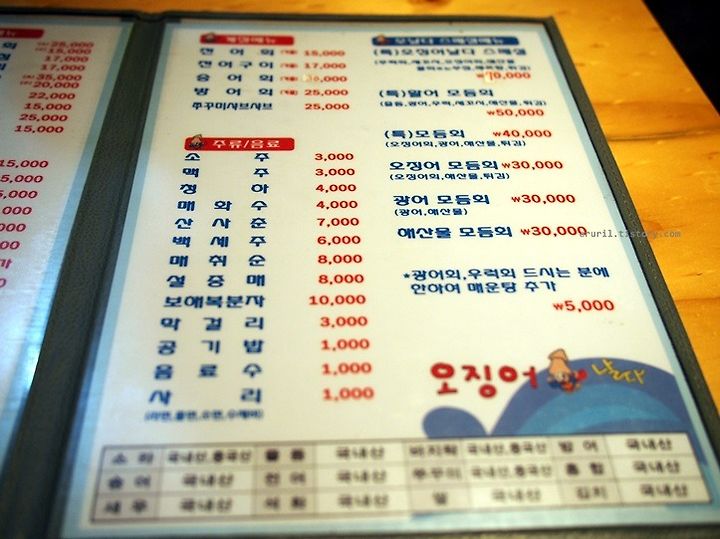 25,000
25,000
17,000
17,000
35,000
20,000
22,000
15,000
25,000
15,000
15,000
15,000
15,000
계절메뉴
전어회 15,000
전어구이 17,000
숭어회
방어회 25,000
쭈꾸미샤브샤브 25,000
주류/음료
소주 3,000
맥주 3,000
청하 4,000
매화수 4,000
산사춘 7,000
백세주 6,000
매취순 8,000
설중매 8,000
보해복분자 10,000
막걸리 3,000
공기밥 1,000
음료수 1,000
사리 1,000
오날다 스페셜메뉴
(특)오징어날다 스페셜
₩70,000
(특)활어 모듬회
(모듬,광어,우럭,세꼬시,해산물,튀김)
₩50,000
(특)모듬회 ₩40,000
(오징어,광어,해산물,튀김)
오징어 모듬회 ₩30,000
(오징어,해산물,튀김)
광어 모듬회 ₩30,000
(광어,해산물)
해산물 모듬회 ₩30,000
ruril.tistory.com
*광어회,우럭회 드시는 분에
한하여 매운탕 추가
₩5,000
오징어 날다
소라 국내산,중국산 멍게 국내산 바지락 국내산,중국산 방어 국내산
숭어 국내산 전어 국내산 쭈꾸미 국내산,중국산 홍합 국내산
새우 국내산 석화 국내산 쌀 국내산 김치 국내산